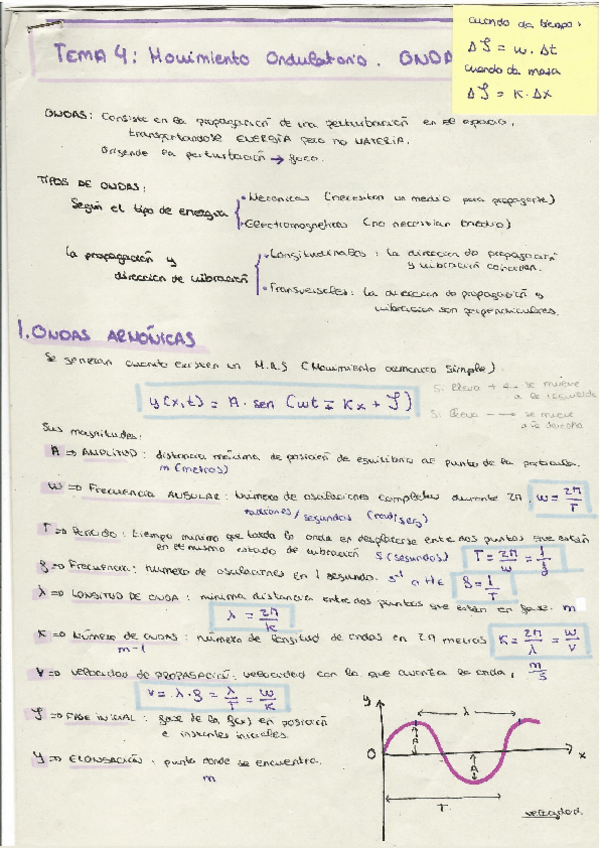 TEMA 4: Movimiento Ondulatorio. ONDA
cuando da tiempo:
Δφ = w. Δt
cuando da masa
Δφ = K. Δx
ONDAS: Consiste en la propagación de una perturbación en el espacio,
transportandose ENERGÍA pero no MATERIA.
Origen de la perturbación → foco.
TIPOS DE ONDAS:
Según el tipo de energía
• Mecanicas (necesitan un medio para propagarse)
• Electromagneticas (no necesitan medio)
La propagación y
dirección de vibración
• Longitudinales: la direccion de propagación
y vibración coinciden.
• Transversales: la direccion de propagación y
vibracion son perpendiculares.
1. ONDAS ARMÓNICAS
Se generan cuando existen un M.A.S (Movimiento armonico Simple).
y(x,t) = A. sen (wt ∓ Kx + φ)
Si lleva + ← se mueve
a la izquierda
Si lleva - → se mueve
a la derecha
Sus magnitudes:
A ⇒ AMPLITUD: distancia máxima de posición de equilibrio al punto de la partícula.
m (metros)
w ⇒ Frecuencia ANGULAR: Número de oscilaciones completas durante 2π. w = 2π/T
radianes/segundos (rad/seg)
T ⇒ Período: tiempo minimo que tarda la onda en desplazarse entre dos puntos que están
en el mismo estado de vibración S (segundos) T = 2π/w = 1/f
f ⇒ Frecuencia: número de oscilaciones en 1 segundo. s⁻¹ o Hz f = 1/T
λ ⇒ LONGITUD DE ONDA: minima distancia entre dos puntos que estan en fase. m
λ = 2π/k
K ⇒ Número de ondas: número de longitud de ondas en 2π metros K = 2π/λ = w/v
m-1
V ⇒ velocidad de PROPAGACIÓN: velocidad con la que avanza la onda, m/s
v = λ.f = λ/T = w/K
φ ⇒ FASE INICIAL: fase de la en posición
e instantes iniciales.
Y ⇒ ELONGACIÓN: punto donde se encuentra.
m
y
λ
A
O
A
x
T
velocidad.